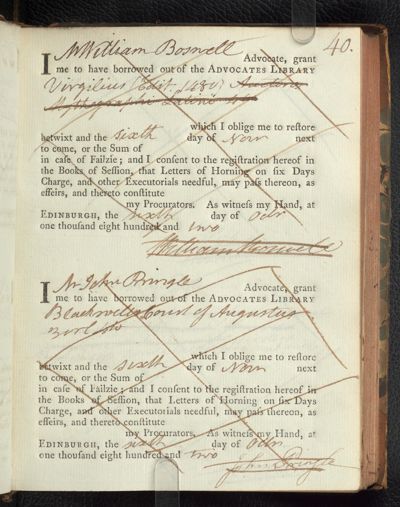 40.
I Mr William Boswell Advocate, grant
me to have borrowed out of the ADVOCATES LIBRARY
Virgilius (Edit. 1680) Auctores
Mythographi Latini 4to
which I oblige me to reſtore
betwixt and the sixth day of Novr next
to come, or the Sum of
in caſe of Failzie; and I conſent to the regiſtration hereof in
the Books of Seſſion, that Letters of Horning on ſix Days
Charge, and other Executorials needful, may paſs thereon, as
effeirs, and thereto conſtitute
my Procurators. As witneſs my Hand, at
EDINBURGH, the sixth day of Octr
one thouſand eight hundred and two
William Boswell
I Mr John Pringle Advocate, grant
me to have borrowed out of the ADVOCATES LIBRARY
Blackwells Court of Augustus
3 vol 4to
which I oblige me to reſtore
betwixt and the sixth day of Novr next
to come, or the Sum of
in caſe of Failzie; and I conſent to the regiſtration hereof in
the Books of Seſſion, that Letters of Horning on ſix Days
Charge, and other Executorials needful, may paſs thereon, as
effeirs, and thereto conſtitute
my Procurators. As witneſs my Hand, at
EDINBURGH, the sixth day of Octr
one thouſand eight hundred and two
John Pringle